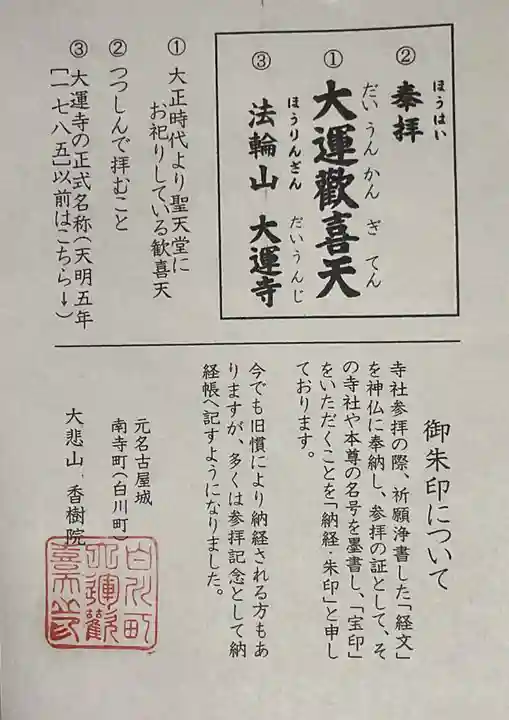 ② 奉拝
ほうはい
① 大運歡喜天
だいうんかんぎてん
③ 法輪山 大運寺
ほうりんざん だいうんじ
① 大正時代より聖天堂に
お祀りしている歓喜天
② つつしんで拝むこと
③ 大運寺の正式名称(天明五年
[一七八五]以前はこちら→)
御朱印について
寺社参拝の際、祈願浄書した「経文」
を神仏に奉納し、参拝の証として、そ
の寺社や本尊の名号を墨書し、「宝印」
をいただくことを「納経・朱印」と申し
ております。
今でも旧慣により納経される方もあ
りますが、多くは参拝記念として納
経帳へ記すようになりました。
元名古屋城
南寺町(白川町)
大悲山 香樹院
白川町
大運歡
喜天